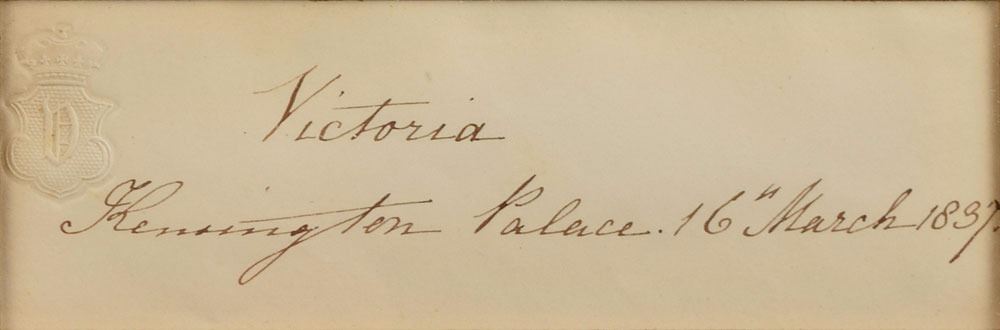 V
Victoria
Kensington Palace. 16" March 1837.